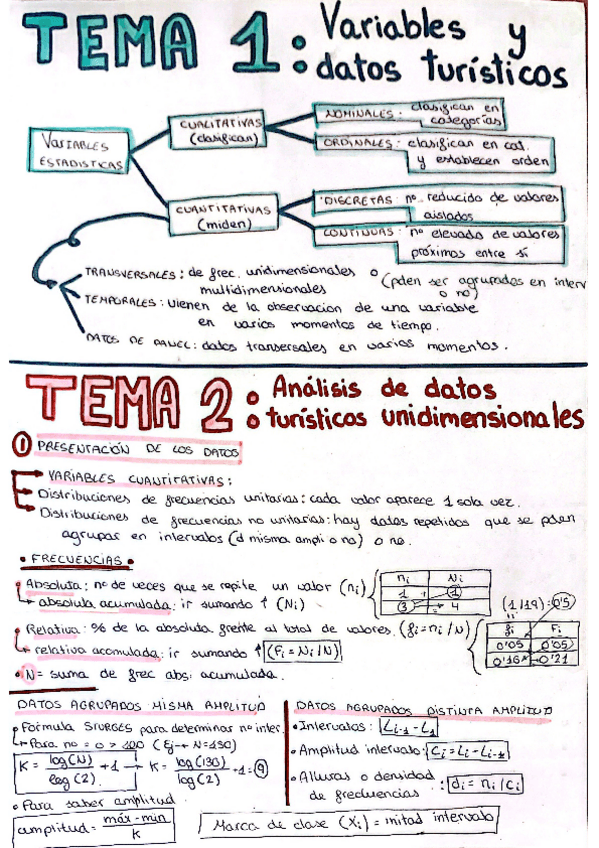 TEMA 1: Variables y
datos turísticos
VARIABLES
ESTADISTICAS
CUALITATIVAS
(clasifican)
NOMINALES: clasifican en
categorías
ORDINALES: clasifican en cat.
y establecen orden
CUANTITATIVAS
(miden)
DISCRETAS: nº reducido de valores
aislados
CONTINUAS: nº elevado de valores
próximos entre sí
TRANSVERSALES: de frec. unidimensionales o
multidimensionales
(pden ser agrupados en interv
o no)
TEMPORALES: vienen de la observacion de una variable
en varios momentos de tiempo.
DATOS DE PANEL: datos transersales en varios momentos.
TEMA 2: Análisis de datos
turísticos unidimensionales
① PRESENTACIÓN DE LOS DATOS
VARIABLES CUANTITATIVAS:
Distribuciones de frecuencias unitarias: cada valor aparece 1 sola vez.
Distribuciones de frecuencias no unitarias: hay datos repetidos que se pden
agrupar en intervalos (d misma ampli o no) o no.
• FRECUENCIAS •
Absoluta: nº de veces que se repite un valor (ni)
absoluta acumulada: ir sumando ↑ (Ni)
ni Ni
1 + 1
3 → 4
Relativa: % de la absoluta frente al total de valores. (fi = ni / N)
relativa acomulada: ir sumando ↑ (Fi = Ni / N)
(1/19) = 0'5
fi Fi
0'05 0'05
0'16 → 0'21
• N = suma de frec abs. acumulada.
DATOS AGRUPADOS MISMA AMPLITUD
• Formula STURGES para determinar nº inter.
Para nº = o > 100 (Ej → N=190)
K = log(N) / log(2) + 1 → K = log(190) / log(2) + 1 = 9
• Para saber amplitud
amplitud = máx - min / K
DATOS AGRUPADOS DISTINTA AMPLITUD
• Intervalos: Li-1 - Li
• Amplitud intervalo: Ci = Li - Li-1
• Alturas o densidad
de frecuencias : di = ni / ci
Marca de clase (Xi) = mitad intervalo